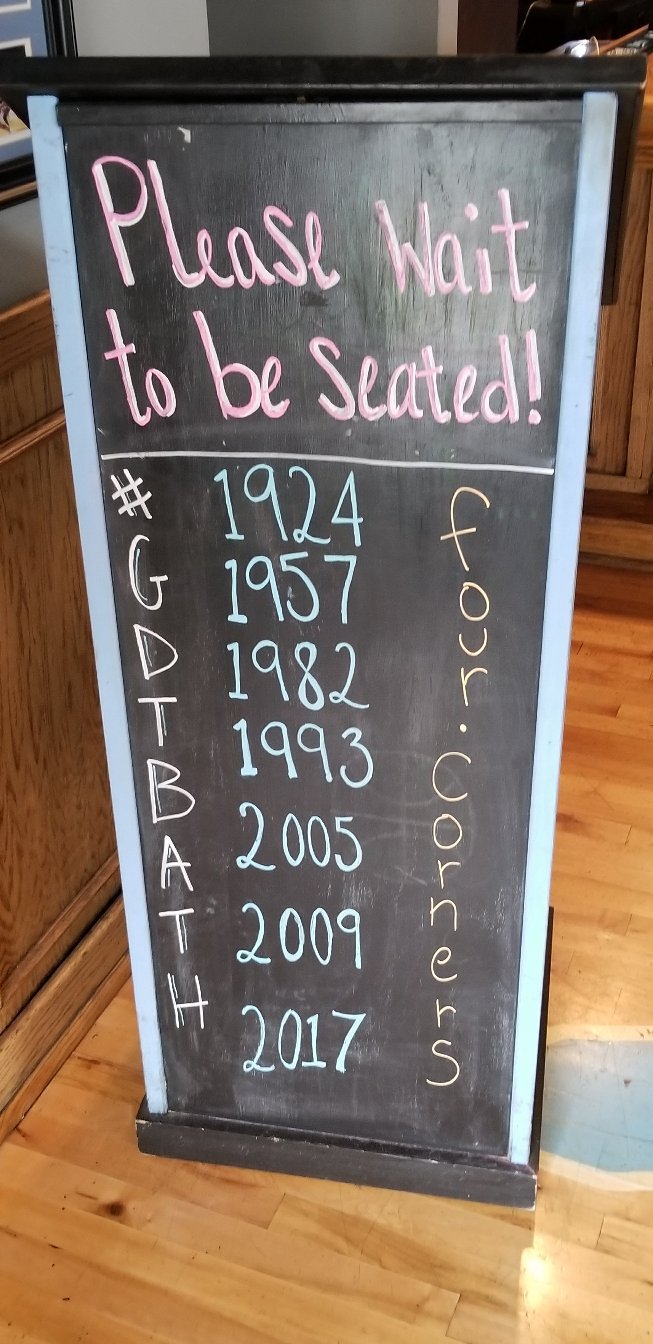 Please Wait
to be Seated!
#GDTBATH
1924
1957
1982
1993
2005
2009
2017
four.Corners